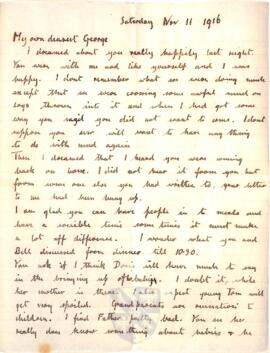 Saturday Nov 11 1916
My own dearest George
I dreamed about you really happily last night.
You were with me and like yourself and I was
happy. I dont remember what we were doing much
except that we were crossing some awful mud on
logs thrown into it and when I had got some
way you said you did not want to come. I dont
suppose you ever will want to have any thing
to do with mud again
Then I dreamed that I heard you were coming
back on leave. I did not hear it from you but
from some one else you had written to, your letter
to me had been hung up.
I am glad you can have people in to meals and
have a sociable time some times it must make
a lot off difference. I wonder what you and
Bell discussed from dinner till 10.30.
You ask if I think will have much to say
in the bringing up of I doubt it, while
her mother is there. I expect young Tom will
get very spoiled. Grandparents are to
children. I find Father bad. You see he
really does know some thing about babies & he